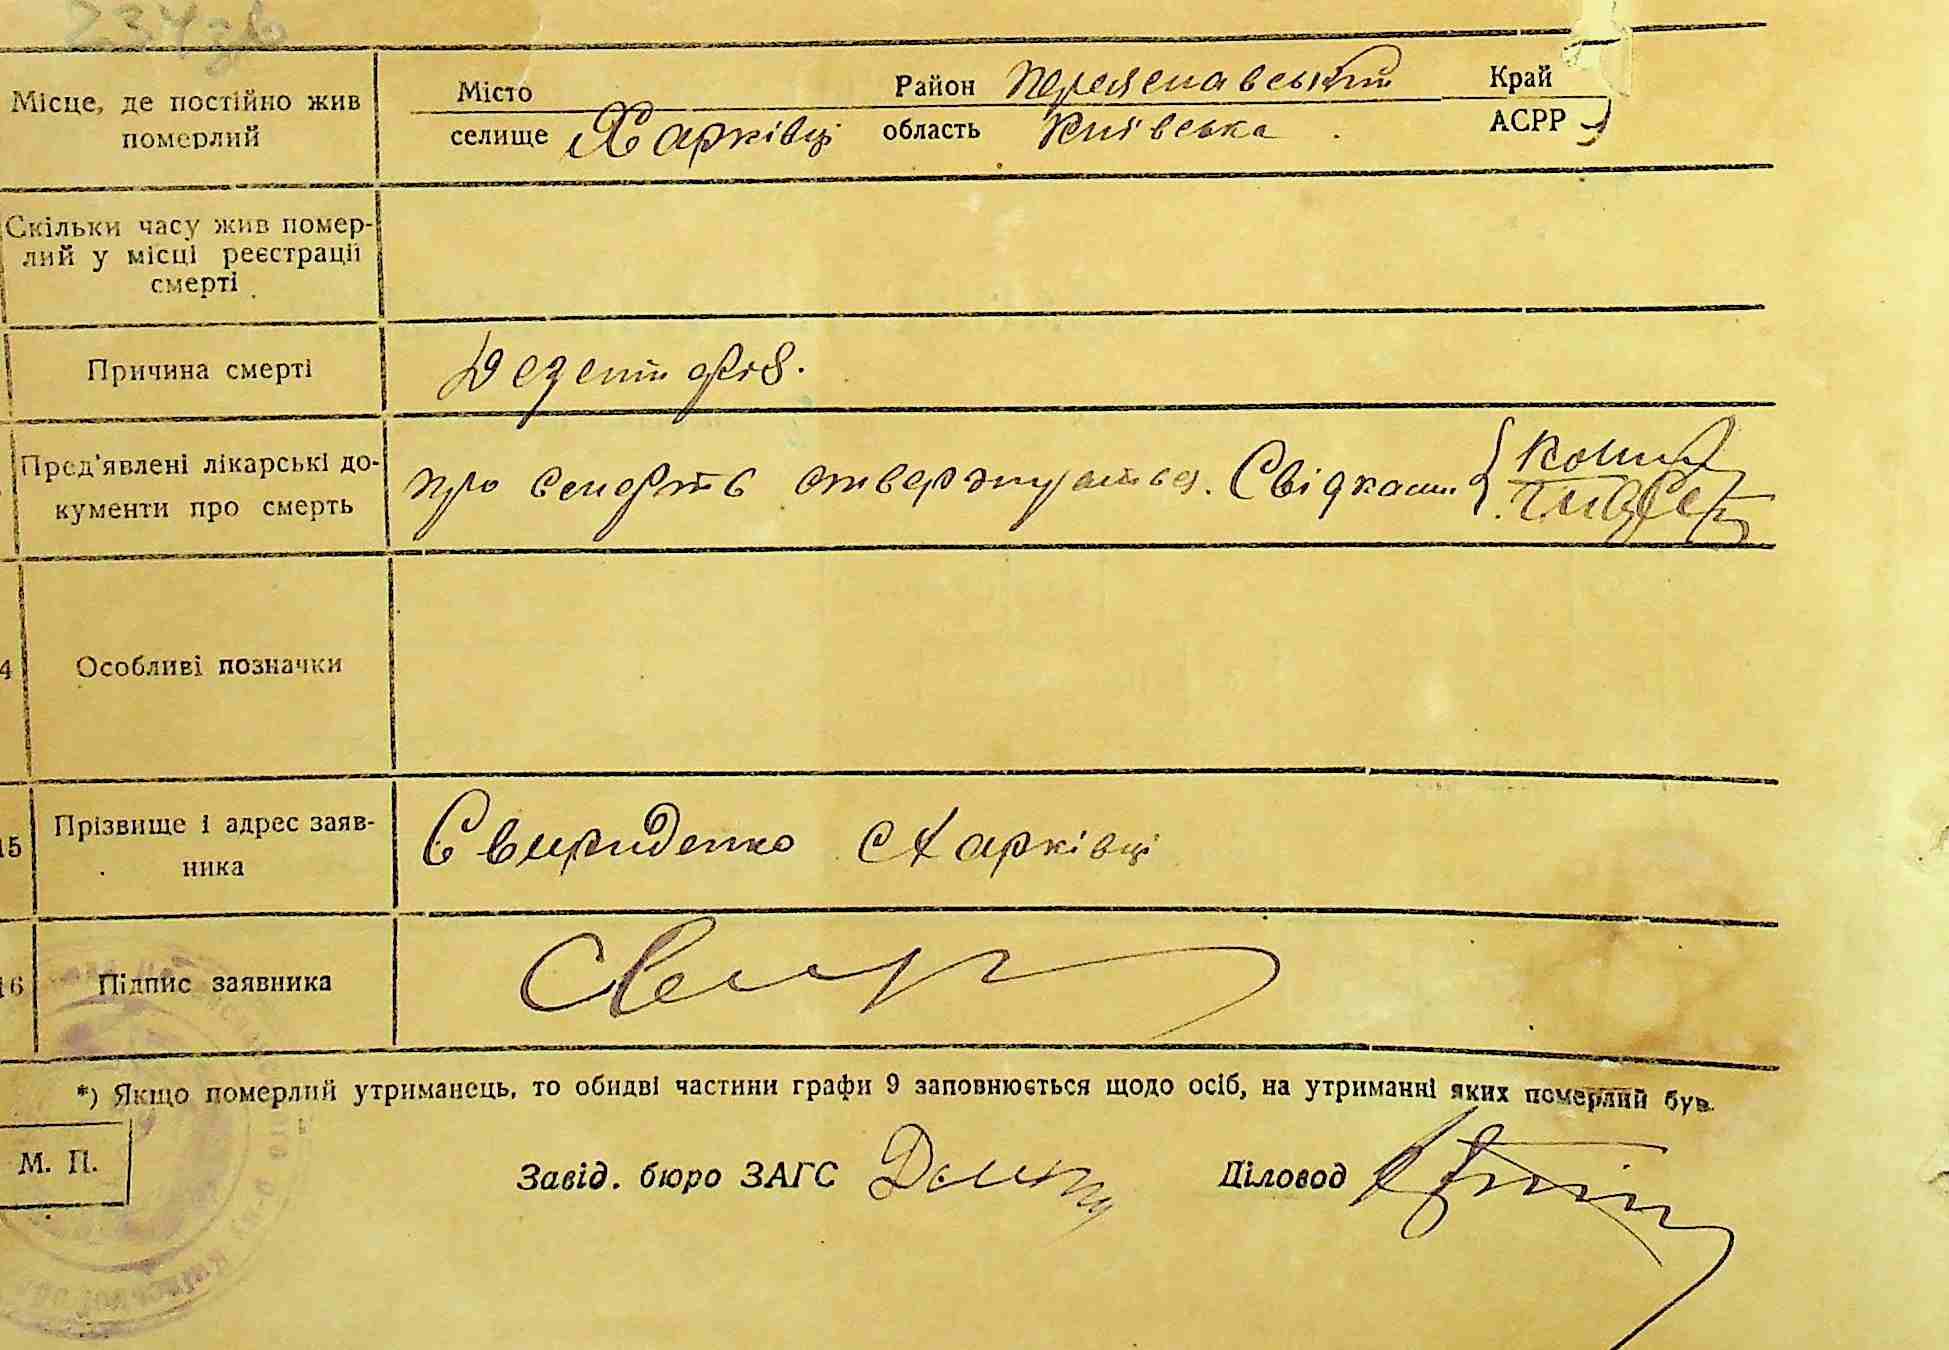 234зв
Місце, де постійно жив
померлий
Місто Район Переяславський Край
селище Харківці область Київська АСРР
Скільки часу жив помер-
лий у місці реєстрації
смерті
Причина смерті
Дезентерія.
Пред'явлені лікарські до-
кументи про смерть
про смерть стверджується. Свідками
4 Особливі позначки
15 Прізвище і адрес заяв-
ника
Свириденко с Харківці
16 Підпис заявника
Свир
*) Якщо померлий утриманець, то обидві частини графи 9 заповнюється щодо осіб, на утриманні яких померлий був.
М. П.
Завід. бюро ЗАГС Діловод